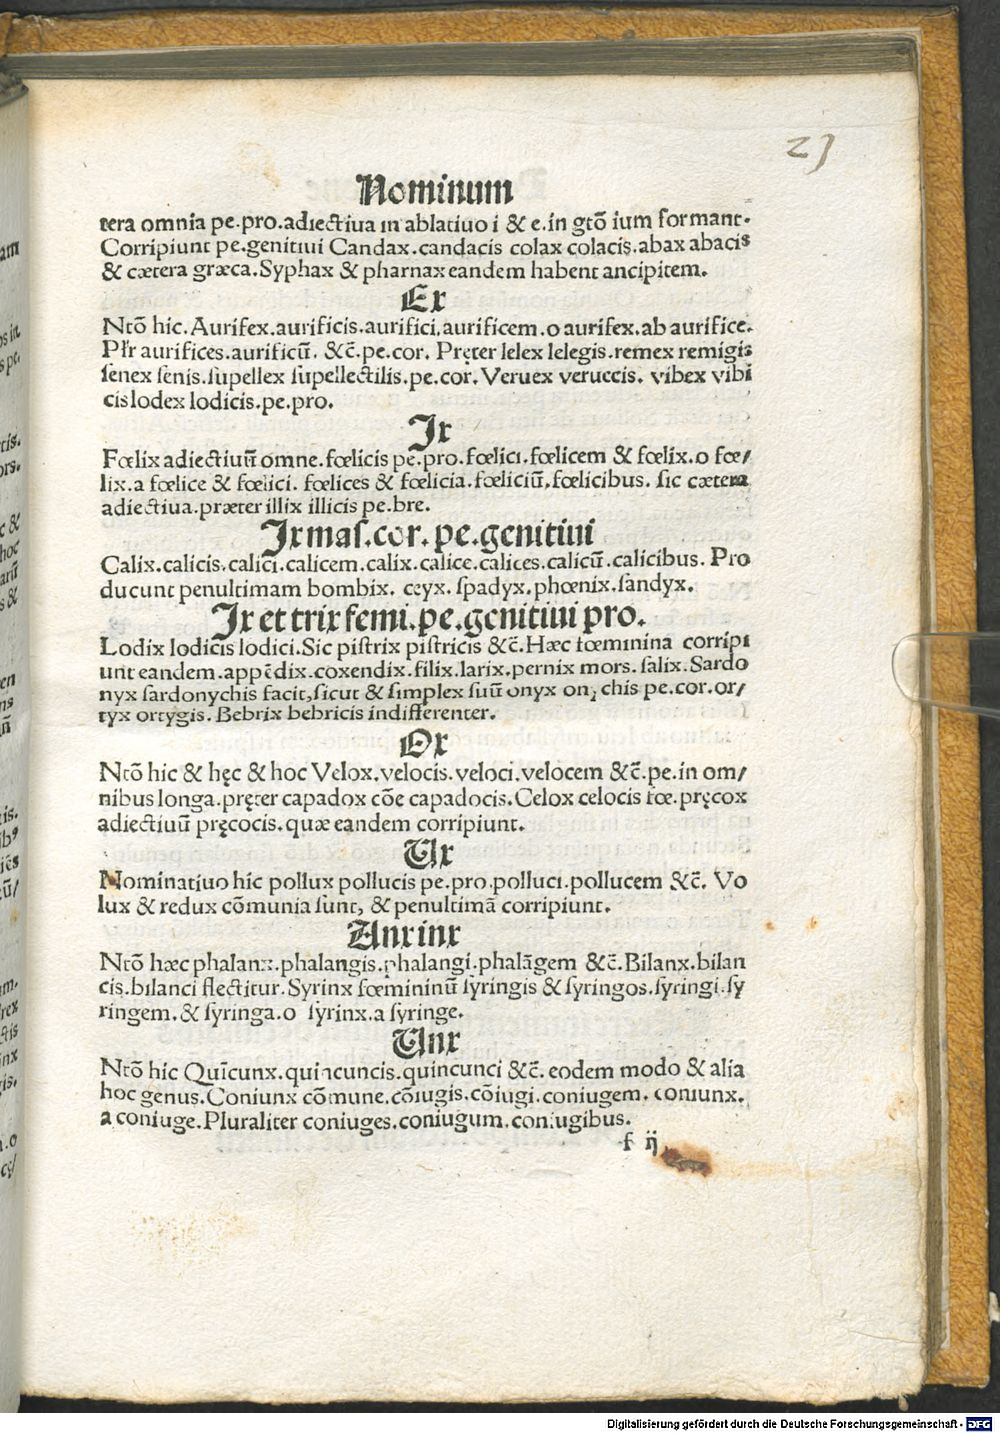 23
Nominum
tera omnia pe.pro.adiectiua in ablatiuo i & e.in gtō ium formant.
Corripiunt pe.genitiui Candax.candacis colax colacis.abax abacis
& cætera græca.Syphax & pharnax eandem habent ancipitem.
Ex
Ntō hic. Aurifex.aurificis.aurifici.aurificem.o aurifex.ab aurifice.
Pľr aurifices.aurificū. &c̄.pe.cor. Pręter lelex lelegis.remex remigis
senex senis.supellex supellectilis.pe.cor. Veruex veruecis. vibex vibi
cis lodex lodicis.pe.pro.
Ix
Fœlix adiectiuū omne.fœlicis pe.pro.fœlici.fœlicem & fœlix.o fœ/
lix.a fœlice & fœlici. fœlices & fœlicia.fœliciū.fœlicibus. sic cætera
adiectiua.præter illix illicis pe.bre.
Ix mas.cor.pe.genitiui
Calix.calicis.calici.calicem.calix.calice.calices.calicū.calicibus. Pro
ducunt penultimam bombix. ceyx. spadyx.phœnix.sandyx.
Ix et trix femi.pe.genitiui pro.
Lodix lodicis lodici.Sic pistrix pistricis &c̄.Hæc fœminina corripi
unt eandem.appēdix.coxendix.filix.larix.pernix mors. salix.Sardo
nyx sardonychis facit,sicut & simplex suū onyx onychis pe.cor.or/
tyx ortygis. Bebrix bebricis indifferenter.
Ox
Ntō hic & hęc & hoc Velox.velocis.veloci.velocem &c̄.pe.in om/
nibus longa.pręter capadox cōe capadocis.Celox celocis fœ.pręcox
adiectiuū pręcocis.quæ eandem corripiunt.
Ux
Nominatiuo hic pollux pollucis pe.pro.polluci.pollucem &c̄. Vo
lux & redux cōmunia sunt, & penultimā corripiunt.
Anx inx
Ntō hæc phalanx.phalangis.phalangi.phalāgem &c̄.Bilanx.bilan
cis.bilanci flectitur.Syrinx fœmininū syringis & syringos.syringi.sy
ringem.& syringa.o syrinx.a syringe.
Unx
Ntō hic Quīcunx.quincuncis.quincunci &c̄. eodem modo & alia
hoc genus.Coniunx cōmune.cōiugis.cōiugi.coniugem. coniunx.
a coniuge.Pluraliter coniuges.coniugum.coniugibus.
f ij
Digitalisierung gefördert durch die Deutsche Forschungsgemeinschaft - DFG